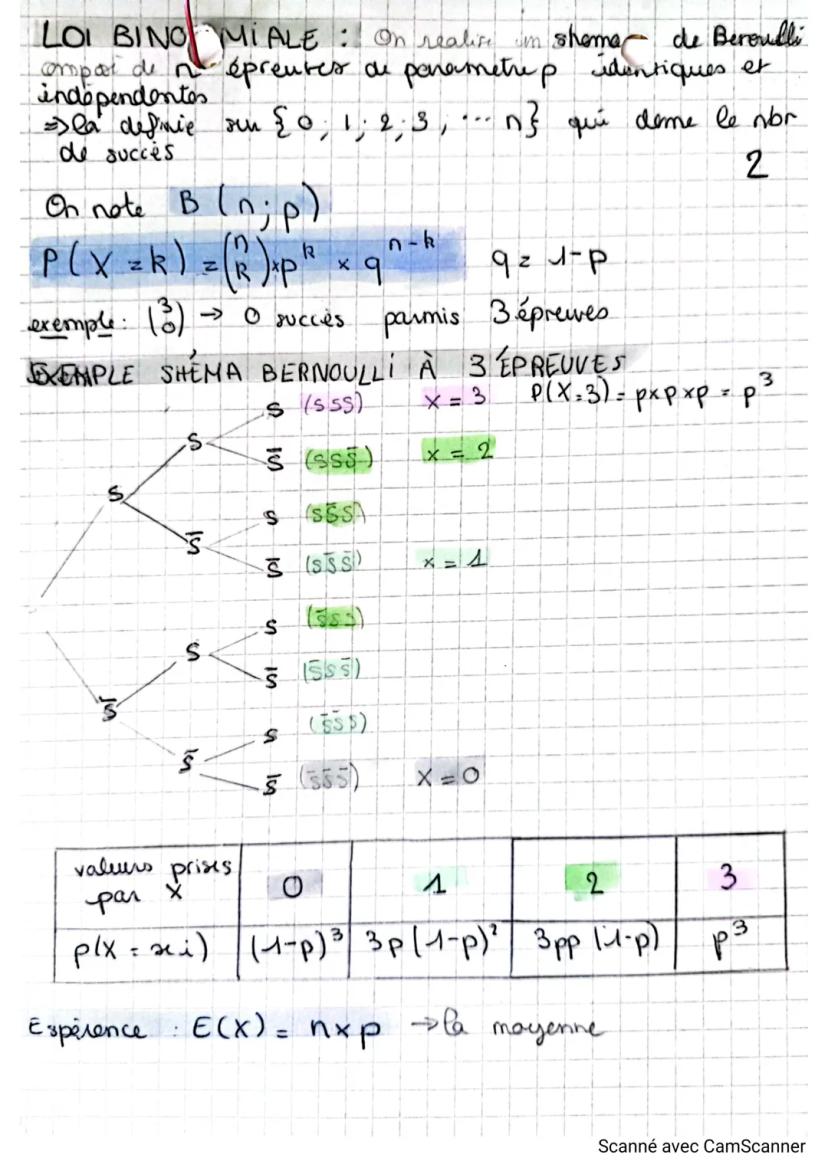 LOI BINOMIALE : On realise un shema de Beroulli
compoé de n épreuves de parametre p identiques et
indépendantes
=> la definie sur {0 ; 1 ; 2 ; 3 ; ... n} qui donne le nbr
de succès
2
On note B (n ; p)
P(X = k) = (n k) × p^k × q^(n-k) q = 1-p
exemple : (3 0) → 0 succès parmis 3 épreuves
EXEMPLE SHÉMA BERNOULLI À 3 ÉPREUVES
S (SSS) x = 3 P(X=3) = p×p×p = p³
S
S̄ (SSS̄) x = 2
S
S (SS̄S)
S̄
S̄ (SS̄S̄) x = 1
S (S̄SS)
S
S̄ (S̄SS̄)
S̄
S (S̄S̄S)
S̄
S̄ (S̄S̄S̄) X = 0
valeurs prises par X 0 1 2 3
p(X = xi) (1-p)³ 3p(1-p)² 3pp(1-p) p³
Espérence : E(X) = n×p → la moyenne
Scanné avec CamScanner